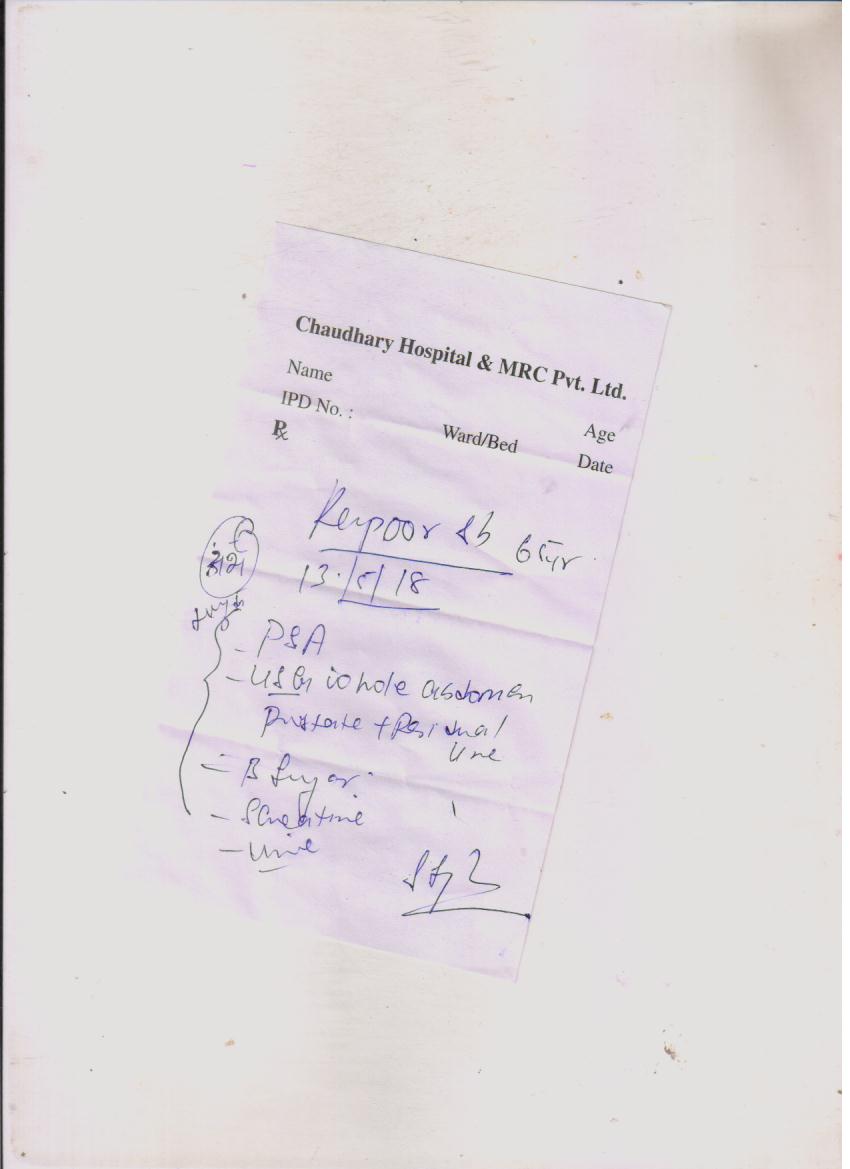 Chaudhary Hospital & MRC Pvt. Ltd.
Name Age
IPD No. : Ward/Bed Date
Rx
Kapoor Sb 65yr
13.5/18
- PSA
- USG whole abdomen
Prostate + Residual
Urine
- B Sugar
- S Creatine
- Urine